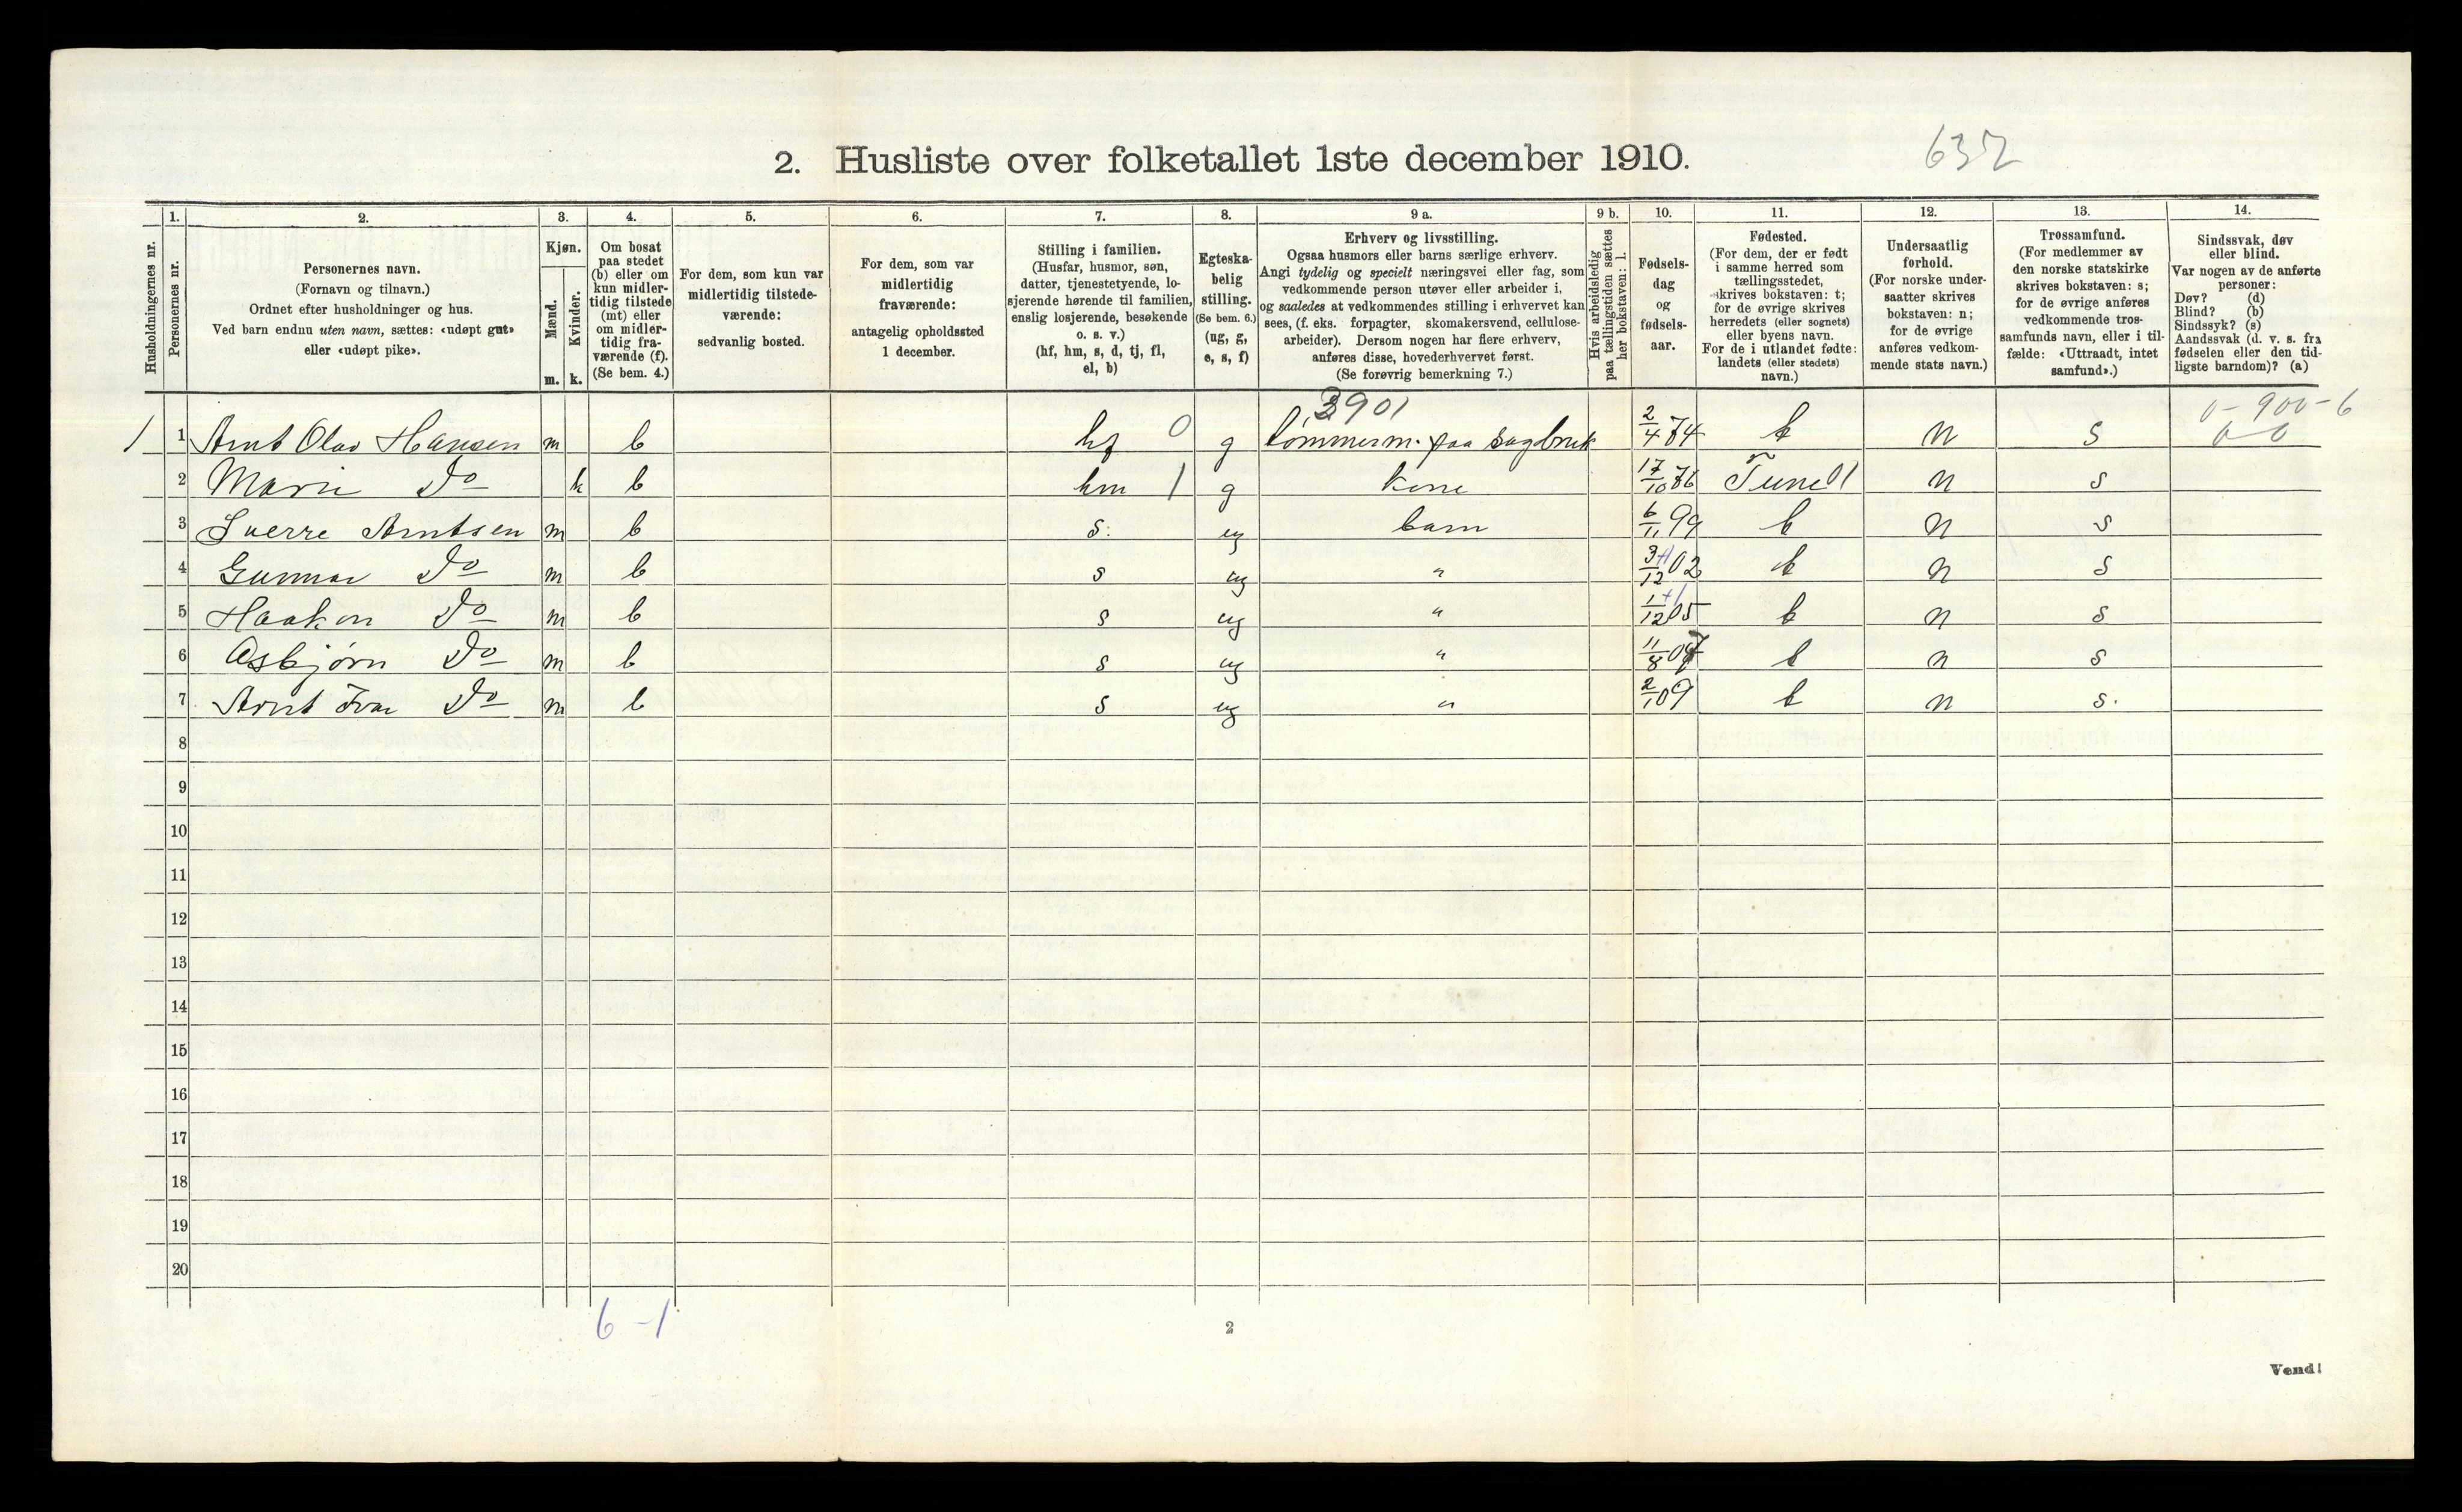 632
2. Husliste over folketallet 1ste december 1910.
Husholdningernes nr.
1. Personernes nr.
2. Personernes navn. (Fornavn og tilnavn.) Ordnet efter husholdninger og hus. Ved barn endnu uten navn, sættes: «udøpt gut» eller «udøpt pike».
3. Kjøn. Mænd. m. Kvinder. k.
4. Om bosat paa stedet (b) eller om kun midler-tidig tilstede (mt) eller om midler-tidig fra-værende (f). (Se bem. 4.)
5. For dem, som kun var midlertidig tilstede-værende: sedvanlig bosted.
6. For dem, som var midlertidig fraværende: antagelig opholdssted 1 december.
7. Stilling i familien. (Husfar, husmor, søn, datter, tjenestetyende, lo-sjerende hørende til familien, enslig losjerende, besøkende o. s. v.) (hf, hm, s, d, tj, fl, el, b)
8. Egteska-belig stilling. (Se bem. 6.) (ug, g, e, s, f)
9 a. Erhverv og livsstilling. Ogsaa husmors eller barns særlige erhverv. Angi tydelig og specielt næringsvei eller fag, som vedkommende person utøver eller arbeider i, og saaledes at vedkommendes stilling i erhvervet kan sees, (f. eks. forpagter, skomakersvend, cellulose-arbeider). Dersom nogen har flere erhverv, anføres disse, hovederhvervet først. (Se forøvrig bemerkning 7.)
9 b. Hvis arbeidsledig paa tællingstiden sættes her bokstaven: l.
10. Fødsels-dag og fødsels-aar.
11. Fødested. (For dem, der er født i samme herred som tællingsstedet, skrives bokstaven: t; for de øvrige skrives herredets (eller sognets) eller byens navn. For de i utlandet fødte: landets (eller stedets) navn.)
12. Undersaatlig forhold. (For norske under-saatter skrives bokstaven: n; for de øvrige anføres vedkom-mende stats navn.)
13. Trossamfund. (For medlemmer av den norske statskirke skrives bokstaven: s; for de øvrige anføres vedkommende tros-samfunds navn, eller i til-fælde: «Uttraadt, intet samfund».)
14. Sindssvak, døv eller blind. Var nogen av de anførte personer: Døv? (d) Blind? (b) Sindssyk? (s) Aandssvak (d. v. s. fra fødselen eller den tid-ligste barndom)? (a)
3901 0-900-6
1 1 Arnt Olav Hansen m b hf 0 g tømmerm. paa sagbruk 2/4 74 t n s 0-0
2 Marie Do k b hm 1 g kone 17/10 76 Tune 01 n s
3 Sverre Arntsen m b s. ug barn 6/11 99 t n s
4 Gunnar Do m b s ug " 3/12 02 +1 t n s
5 Haakon Do m b s ug " 1/12 05 +1 t n s
6 Asbjørn Do m b s ug " 11/8 07 t n s
7 Arnt Ivar Do m b s ug " 2/1 09 t n s.
8
9
10
11
12
13
14
15
16
17
18
19
20
6-1
2
Vend!